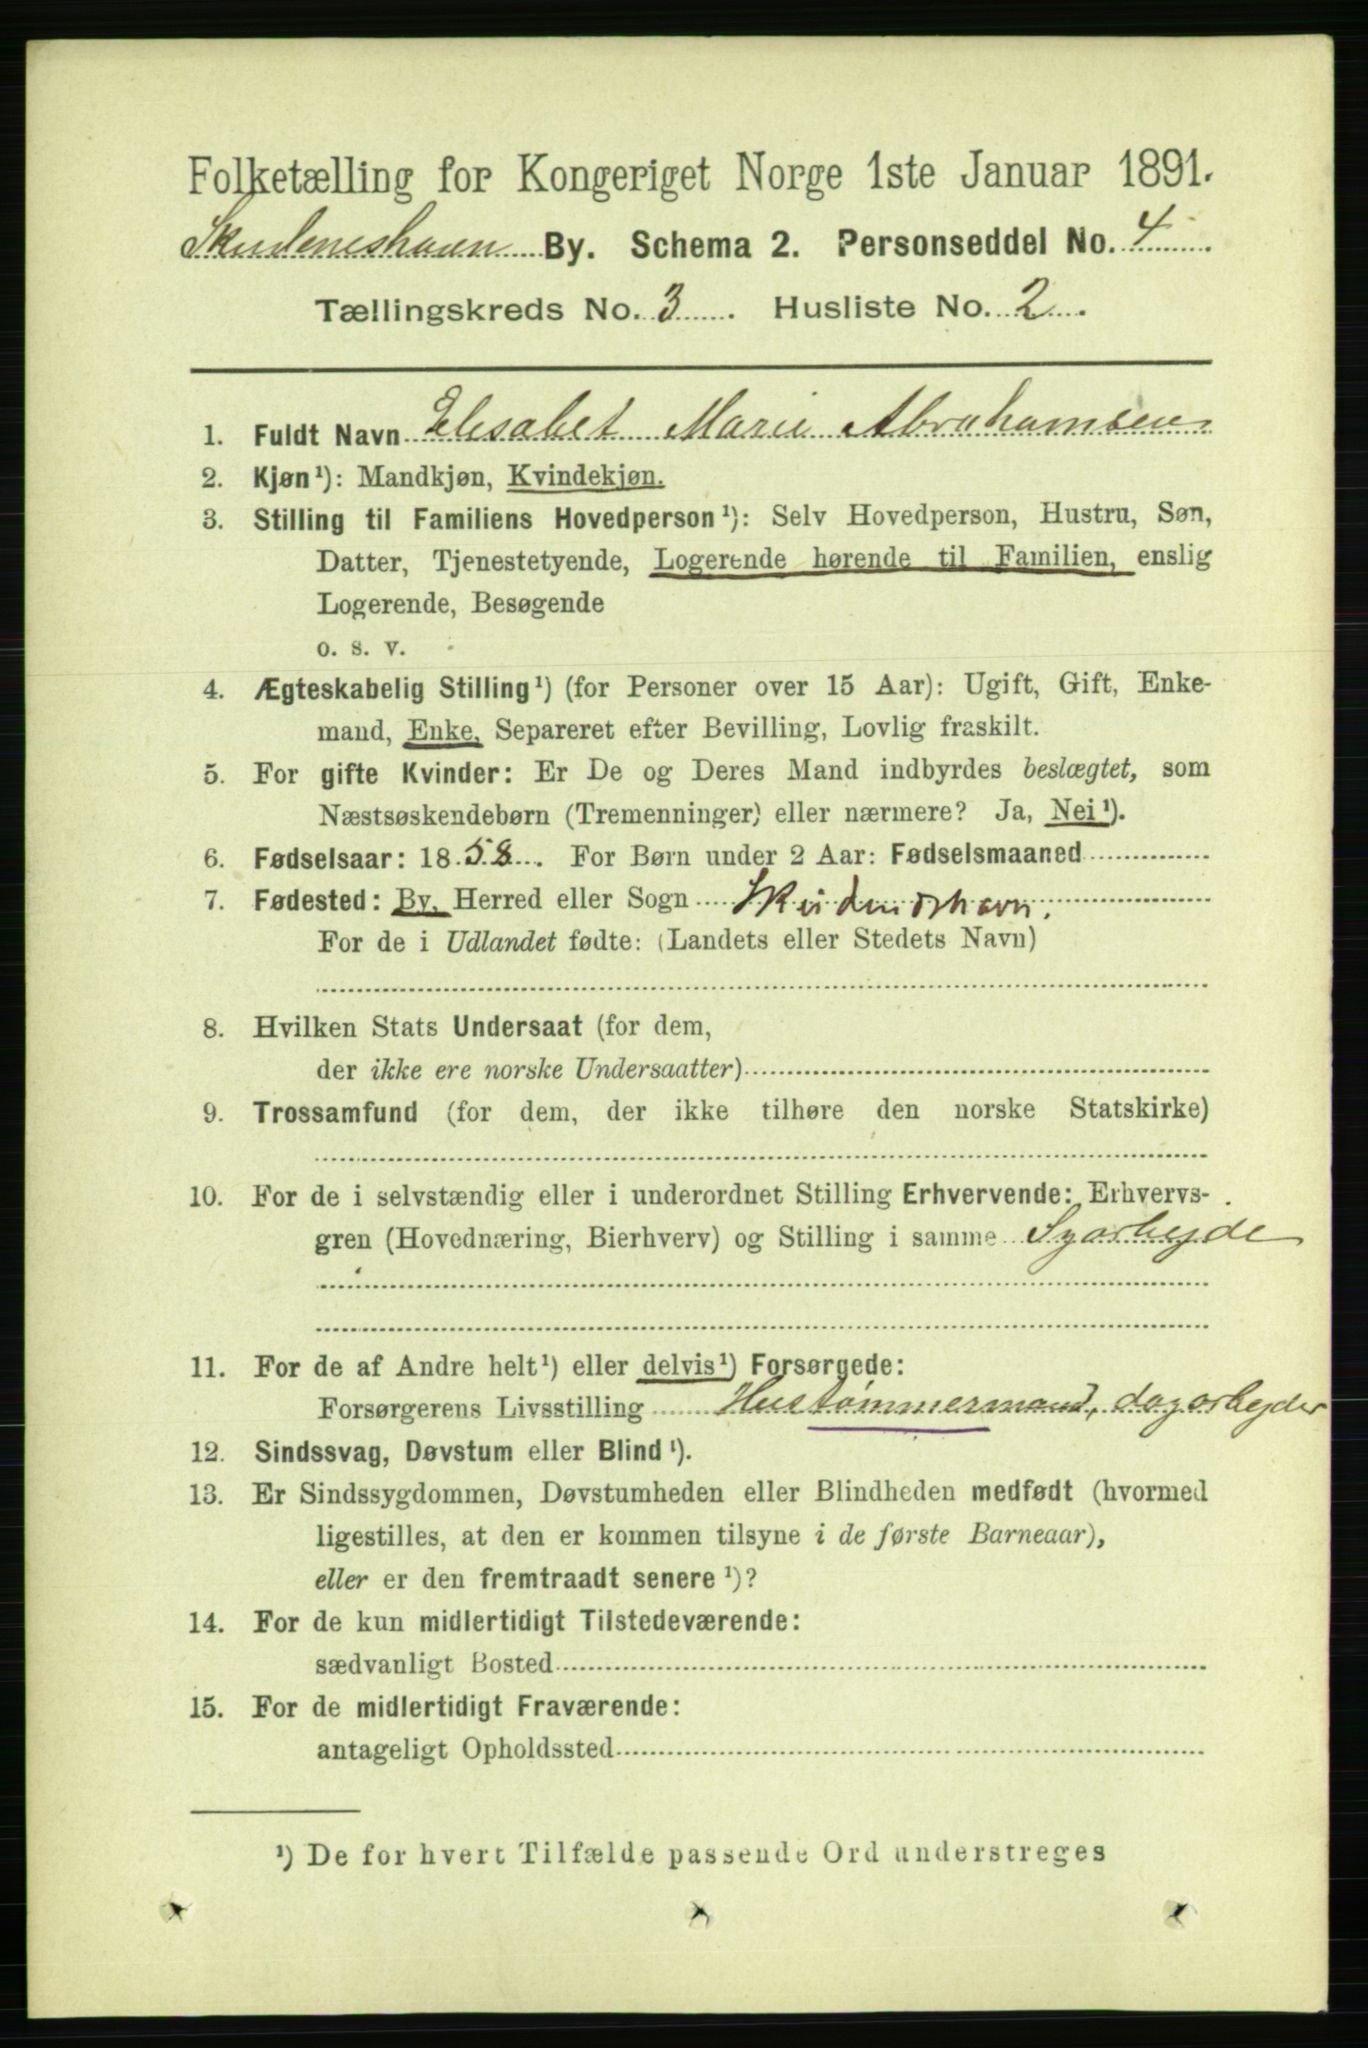 Folketælling for Kongeriget Norge 1ste Januar 1891.
Skudeneshavn By. Schema 2. Personseddel No. 4
Tællingskreds No. 3. Husliste No. 2.
1. Fuldt Navn Elisabet Marie Abrahamsen
2. Kjøn¹): Mandkjøn, Kvindekjøn.
3. Stilling til Familiens Hovedperson¹): Selv Hovedperson, Hustru, Søn,
Datter, Tjenestetyende, Logerende hørende til Familien, enslig
Logerende, Besøgende
o. s. v.
4. Ægteskabelig Stilling¹) (for Personer over 15 Aar): Ugift, Gift, Enke-
mand, Enke, Separeret efter Bevilling, Lovlig fraskilt.
5. For gifte Kvinder: Er De og Deres Mand indbyrdes beslægtet, som
Næstsøskendebørn (Tremenninger) eller nærmere? Ja, Nei¹).
6. Fødselsaar: 1858. For Børn under 2 Aar: Fødselsmaaned
7. Fødested: By, Herred eller Sogn Skudeneshavn.
For de i Udlandet fødte: (Landets eller Stedets Navn)
8. Hvilken Stats Undersaat (for dem,
der ikke ere norske Undersaatter)
9. Trossamfund (for dem, der ikke tilhøre den norske Statskirke)
10. For de i selvstændig eller i underordnet Stilling Erhvervende: Erhvervs-
gren (Hovednæring, Bierhverv) og Stilling i samme Syarbeyde
11. For de af Andre helt¹) eller delvis¹) Forsørgede:
Forsørgerens Livsstilling Hustømmermand, dagarbeyder
12. Sindssvag, Døvstum eller Blind¹).
13. Er Sindssygdommen, Døvstumheden eller Blindheden medfødt (hvormed
ligestilles, at den er kommen tilsyne i de første Barneaar),
eller er den fremtraadt senere¹)?
14. For de kun midlertidigt Tilstedeværende:
sædvanligt Bosted
15. For de midlertidigt Fraværende:
antageligt Opholdssted
¹) De for hvert Tilfælde passende Ord understreges